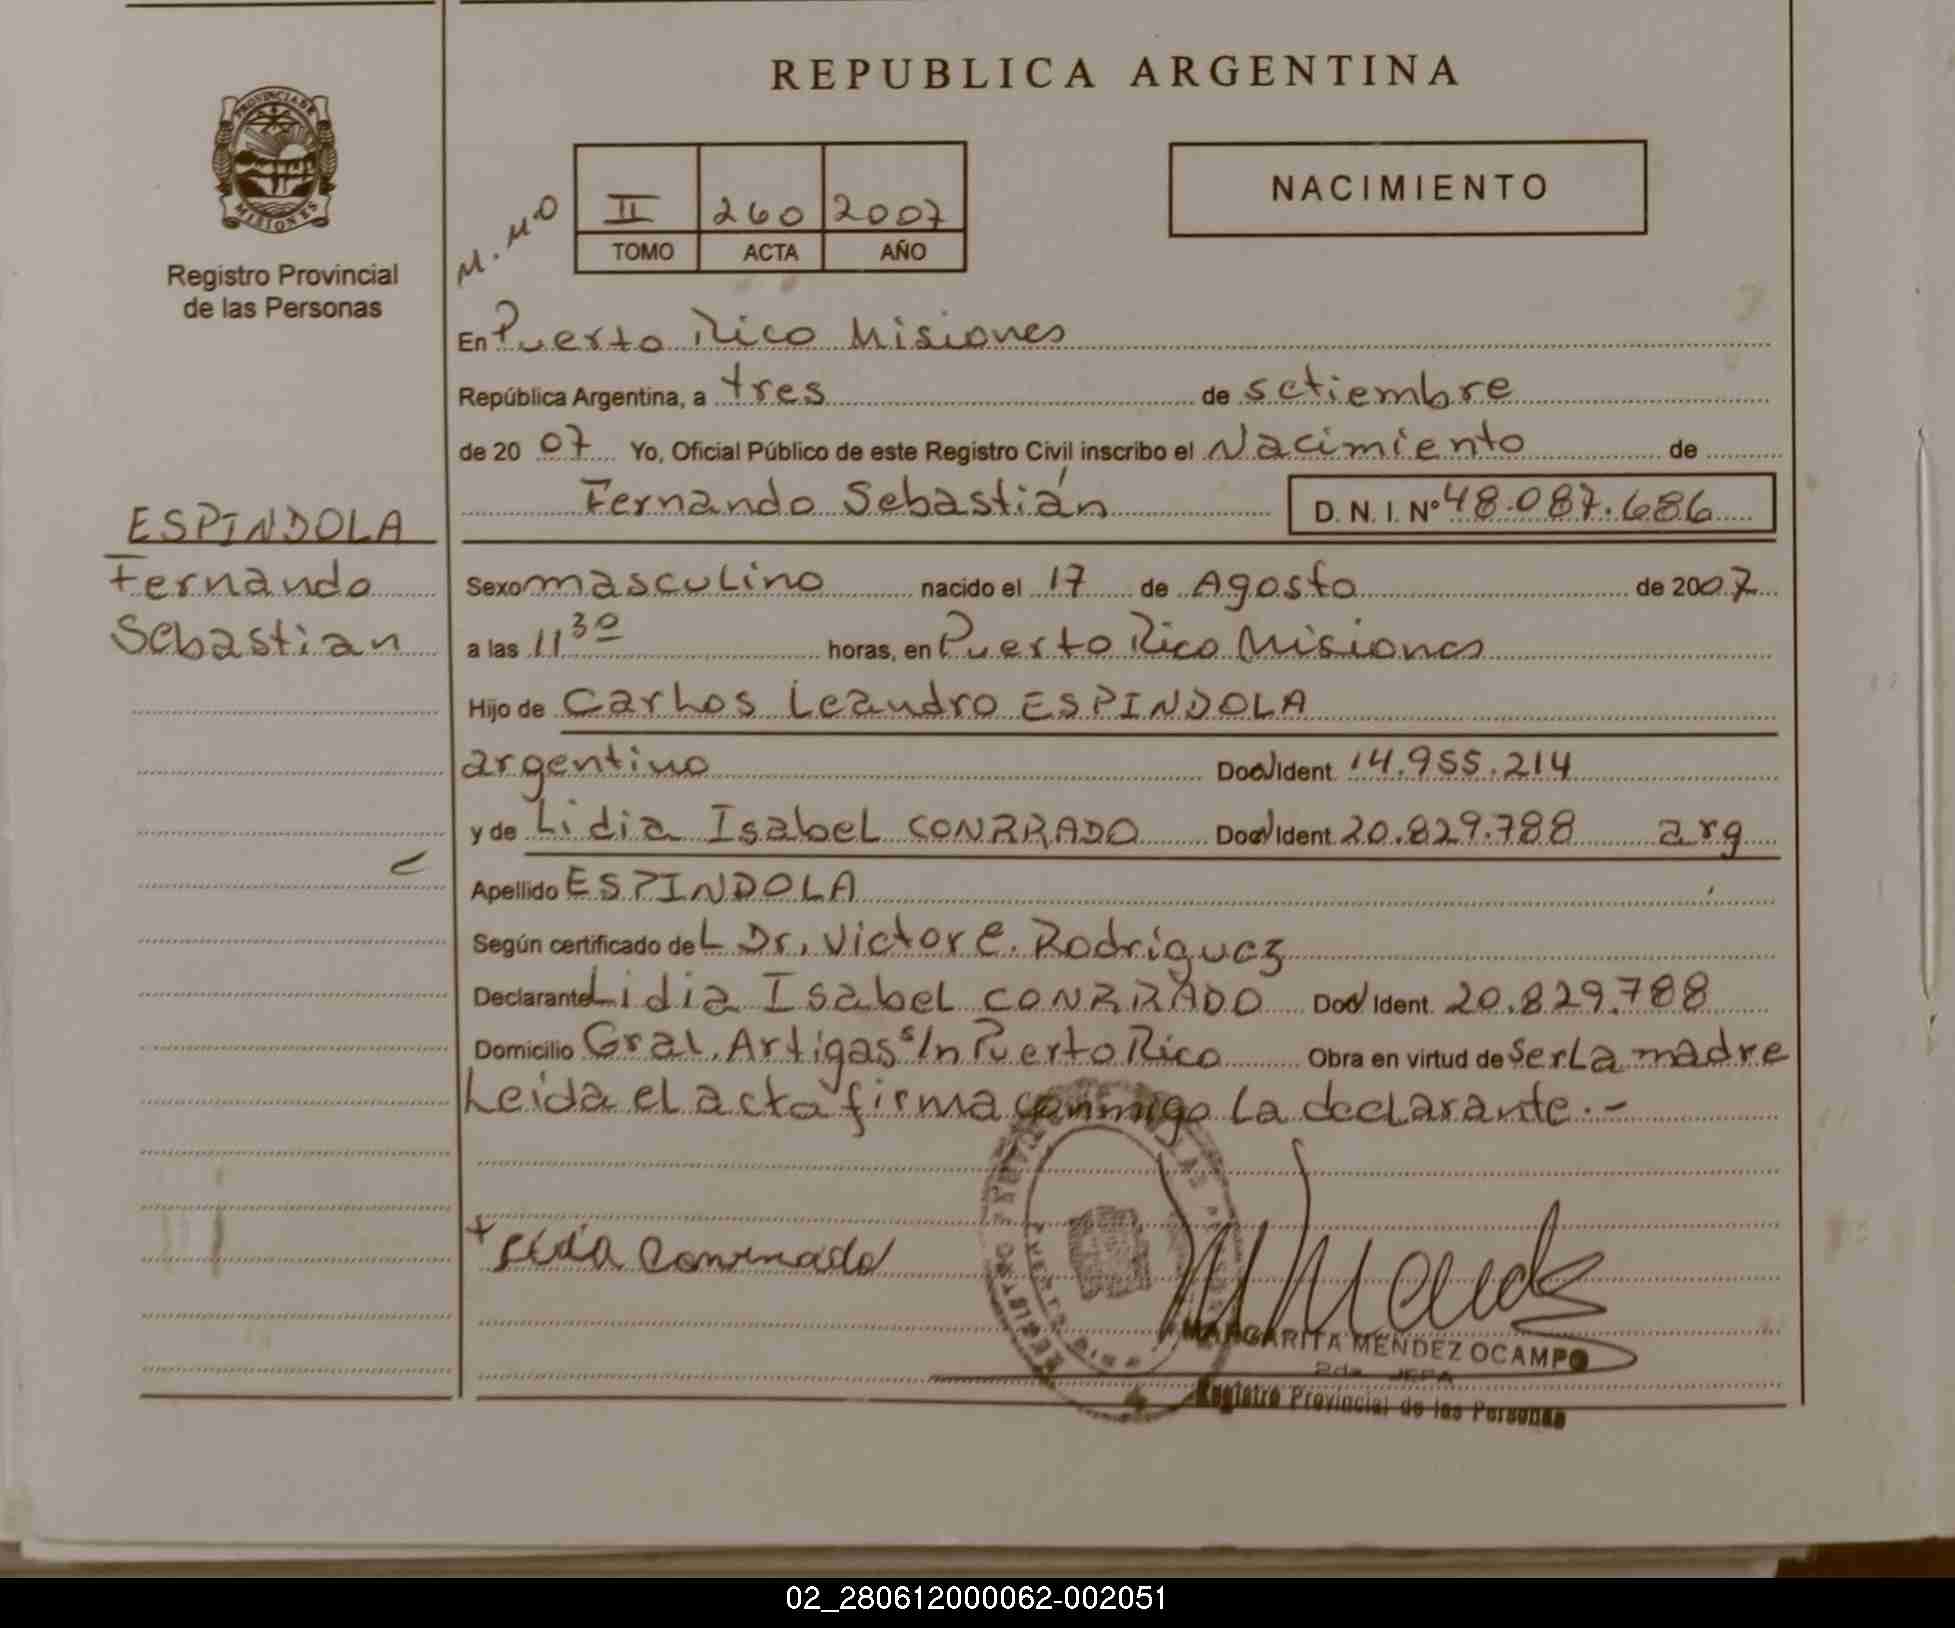 REPUBLICA ARGENTINA
PROVINCIA DE MISIONES
Registro Provincial
de las Personas
M.M.O
II 260 2007
TOMO ACTA AÑO
NACIMIENTO
En Puerto Rico Misiones
República Argentina, a tres de setiembre
de 2007 Yo, Oficial Público de este Registro Civil inscribo el Nacimiento de
Fernando Sebastián D. N. I. Nº 48.087.686
ESPINDOLA
Fernando
Sebastian
Sexo masculino nacido el 17 de Agosto de 2007
a las 11 30 horas, en Puerto Rico Misiones
Hijo de Carlos Leandro ESPINDOLA
argentino Doc/Ident. 14.955.214
y de Lidia Isabel CONRRADO Doc/Ident. 20.829.788 arg
Apellido ESPINDOLA
Según certificado del Dr. Victor E. Rodriguez
Declarante Lidia Isabel CONRRADO Doc/Ident. 20.829.788
Domicilio Gral. Artigas s/n Puerto Rico Obra en virtud de ser La madre
Leida el acta firma conmigo La declarante.-
+ Lidia Conrrado
MARGARITA MENDEZ OCAMPO
2da JEFA
Registro Provincial de las Personas
02_280612000062-002051